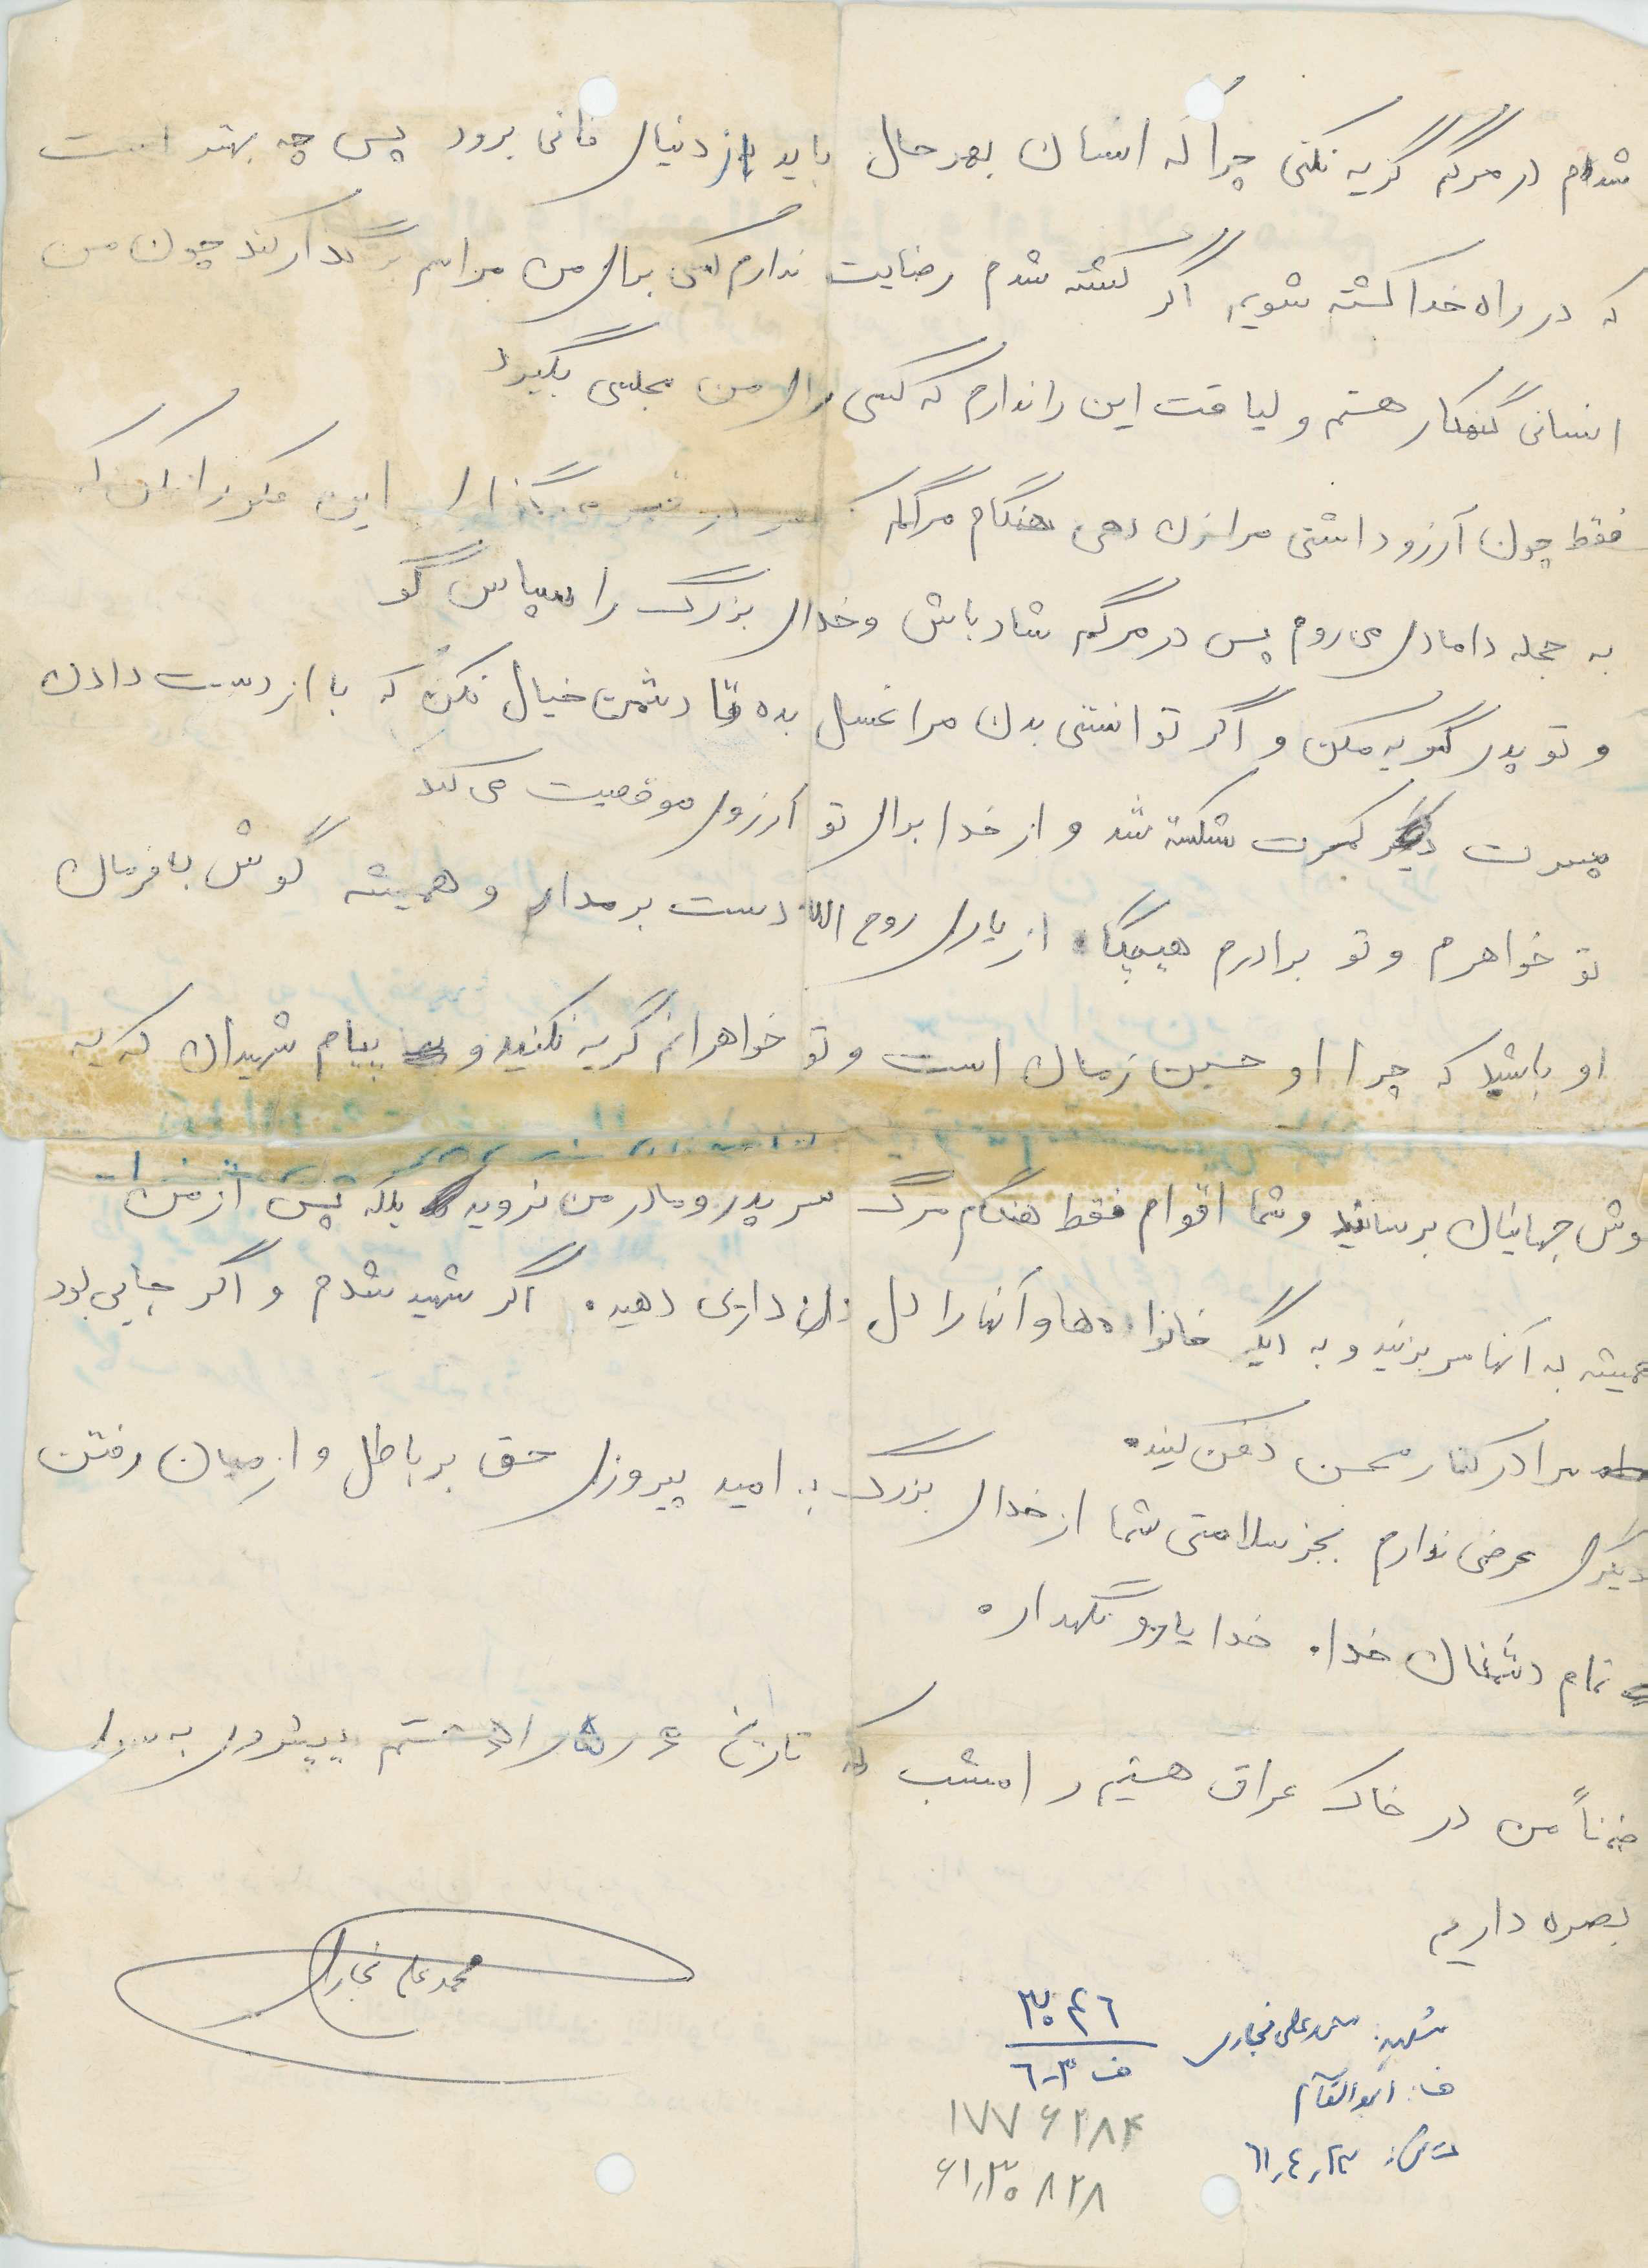 شدم در مرگم گریه نکنی چرا که انسان بهرحال باید از دنیای فانی برود پس چه بهتر است
که در راه خدا کشته شویم اگر کشته شدم رضایت ندارم کسی برای من مراسم برگذار کند چون من
انسانی گنهکار هستم و لیاقت این را ندارم که کسی برای من مجلسی بگیرد
فقط چون آرزو داشتی مرا زن دهی هنگام مرگم که سر در قبر می گذارم این فکر را بکن که
به حجله دامادی می روم پس در مرگم شاد باش و خدای بزرگ را سپاس گو
و تو پدر گریه مکن و اگر توانستی بدن مرا غسل بده تا دشمن خیال نکن که با از دست دادن
پسرت دیگر کمرت شکسته شد و از خدا برای تو آرزوی موفقیت می کند
تو خواهرم و تو برادرم هیچگاه از یاری روح الله دست برمدار و همیشه گوش بفرمان
او باشید که چرا او حسین زمان است و تو خواهرانم گریه نکنید و پیام شهیدان که به
گوش جهانیان برسانید و شما اقوام فقط هنگام مرگ سر پدر و مادر من نروید بلکه پس از من
همیشه به آنها سر بزنید و به دیگر خانواده ها و آنها را دل داری دهید. اگر شهید شدم و اگر جایی بود
مرا در کنار محسن دفن کنید.
دیگر عرضی ندارم بجز سلامتی شما از خدای بزرگ به امید پیروزی حق بر باطل و از میان رفتن
تمام دشمنان خدا. خدا یار و نگهدار.
ضمناً من در خاک عراق هستیم و امشب که تاریخ هستم پیشروی به سوی
بصره داریم
محمد علی نجاری
شهید: محمد علی نجاری
ف: ابوالقاسم
ت ش: ۶۱٫۴٫۲۳
۳۰۴۶
ف ۳-۶
۱۷۷۶۲۸۴
۶۱٫۳۰۸۲۸